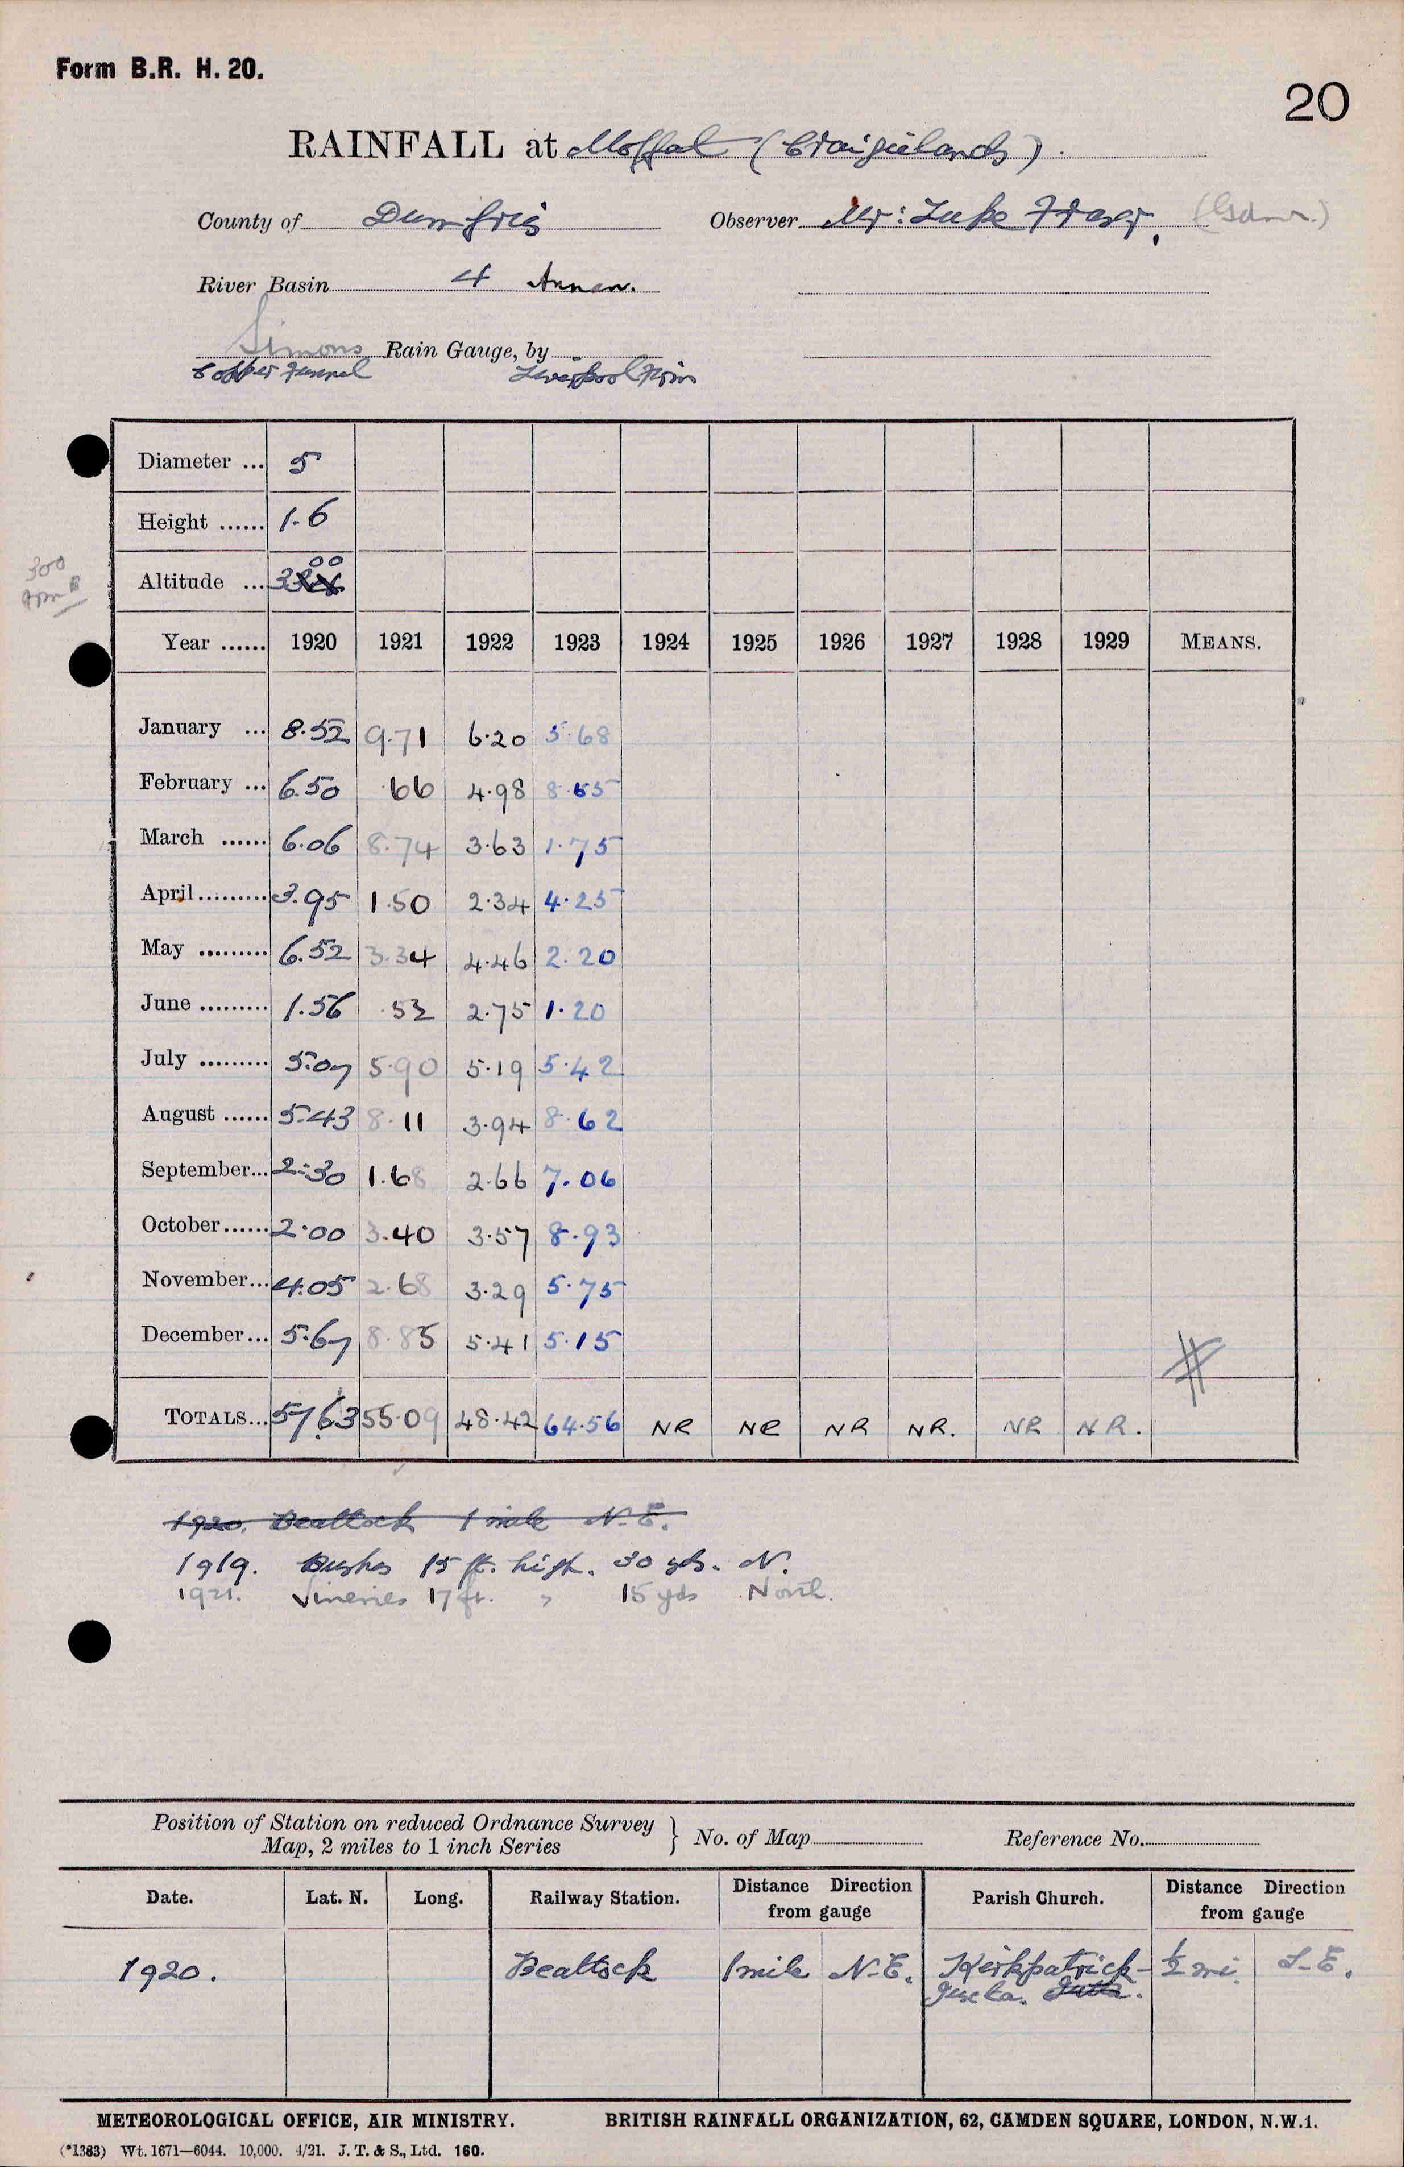 Form B.R. H. 20.
20
RAINFALL at Moffat (Craigielands).
County of Dumfries Observer Mr: Luke Fraser, (Gdnr.)
River Basin 4 Annan.
Simons Rain Gauge, by
Copper Funnel Liverpool Firm
Diameter ... 5
Height ...... 1.6
300
Altitude ... 3 00
Year ...... 1920 1921 1922 1923 1924 1925 1926 1927 1928 1929 MEANS.
January ... 8.52 9.71 6.20 5.68
February ... 6.50 .66 4.98 8.55
March ...... 6.06 8.74 3.63 1.75
April ......... 3.95 1.50 2.34 4.25
May ......... 6.52 3.34 4.46 2.20
June ......... 1.56 .52 2.75 1.20
July ......... 5.07 5.90 5.19 5.42
August ...... 5.43 8.11 3.94 8.62
September... 2.30 1.68 2.66 7.06
October...... 2.00 3.40 3.57 8.93
November... 4.05 2.68 3.29 5.75
December... 5.67 8.85 5.41 5.15
TOTALS... 57.63 55.09 48.42 64.56 NR NR NR NR. NR NR.
1920. Beattock 1 mile N.E.
1919. Bushes 15 ft. high. 30 yds. N.
1921. Vineries 17 ft. " 15 yds North.
Position of Station on reduced Ordnance Survey
Map, 2 miles to 1 inch Series } No. of Map Reference No.
Date. Lat. N. Long. Railway Station. Distance Direction from gauge Parish Church. Distance Direction from gauge
1920. Beattock 1 mile N.E. Kirkpatrick- ½ mi. S.E.
Juxta. Jutta.
METEOROLOGICAL OFFICE, AIR MINISTRY. BRITISH RAINFALL ORGANIZATION, 62, CAMDEN SQUARE, LONDON, N.W.1.
(*1383) Wt. 1671—6044. 10,000. 4/21. J. T. & S., Ltd. 160.